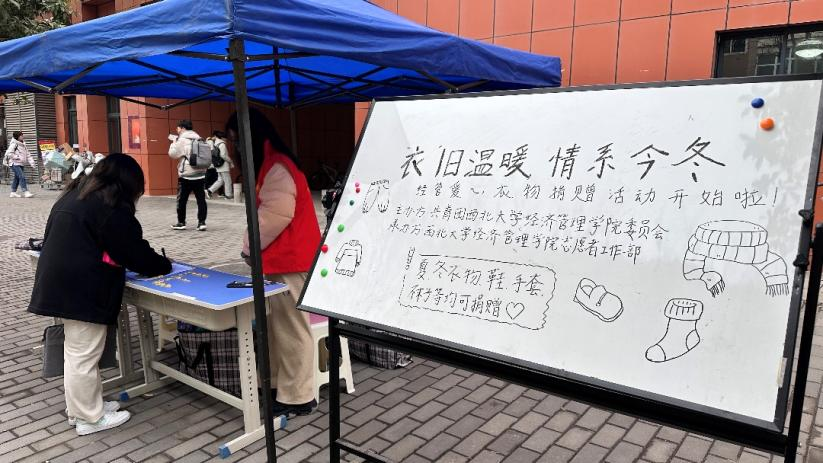 衣旧温暖 情系今冬
经管爱心衣物捐赠活动开始啦！
主办方：共青团西北大学经济管理学院委员会
承办方：西北大学经济管理学院志愿者工作部
夏冬衣物鞋手套
袜子等均可捐赠♡